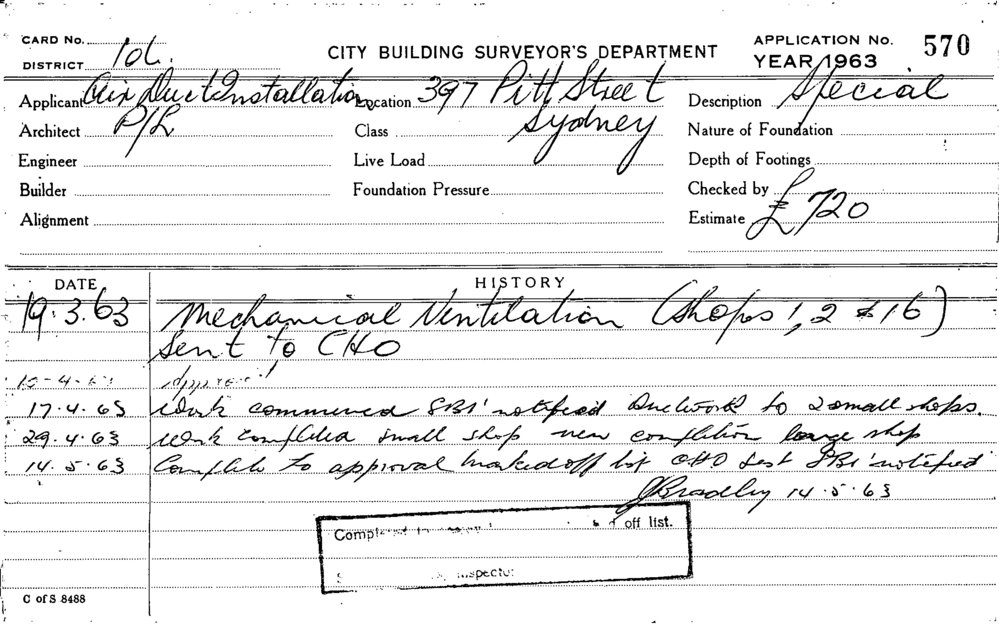 CARD No.
DISTRICT
CITY BUILDING SURVEYOR'S DEPARTMENT
APPLICATION No. 570
YEAR 1963
Applicant Air Duct Installation
P/L
Location 397 Pitt Street
Sydney
Description Special
Architect
Class
Nature of Foundation
Engineer
Live Load
Depth of Footings
Builder
Foundation Pressure
Checked by
Alignment
Estimate £720
DATE HISTORY
19.3.63 Mechanical Ventilation (Shops 1, 2 & 16)
Sent to CHO
Approved
17.4.63 Work commenced SBI notified Ductwork to 2 small shops.
29.4.63 Work completed small shop near completion large shop
14.5.63 Complete to approval marked off list CHO SBI notified
JBradley 14.5.63
off list.
Inspector
C of S 8488